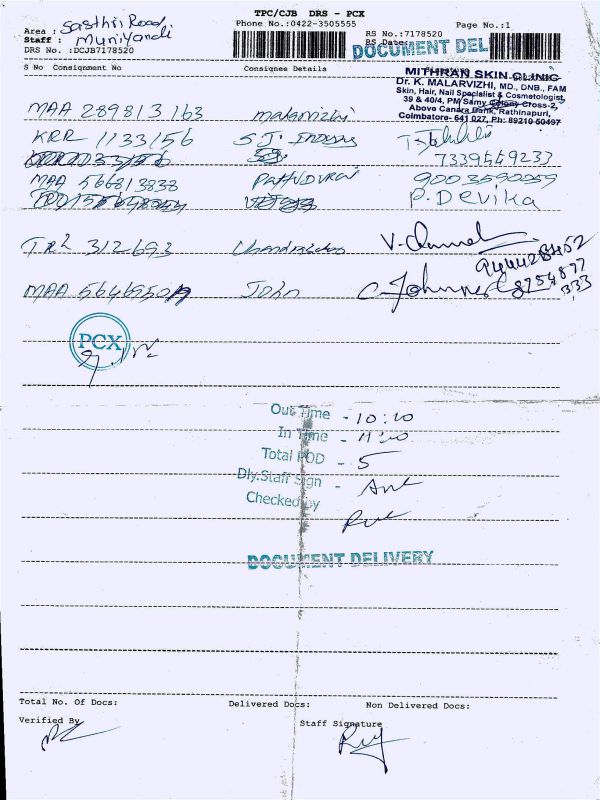 TPC/CJB DRS - PCX
Area : Sasthri Road,
Phone No.:0422-3505555
Page No.:1
Staff : Muniyandi
RS No.:7178520
DRS No. :DCJB7178520
RS Date:
DOCUMENT DEL
S No Consignment No
Consignee Details
Signature
MITHRAN SKIN CLINIC
Dr. K. MALARVIZHI, MD., DNB., FAM
Skin, Hair, Nail Specialist & Cosmetologist
39 & 40/4, PM Samy Colony Cross-2,
Above Canara Bank, Rathinapuri,
Coimbatore- 641 027, Ph: 89210 50497
MAA 289813163 malarvizhi
KRR 1133156 S.J.
7339549233
MAA 566813838 Pathidurai 9003590059
P. Devika
TRZ 312693 Chandra V.
9444284452
MAA 56469501 John C. Johnner
8754877
333
PCX
Out Time - 10:10
In Time - 11:20
Total POD - 5
Dly.Staff Sign -
Checked by
DOCUMENT DELIVERY
Total No. Of Docs: Delivered Docs: Non Delivered Docs:
Verified By
Staff Signature